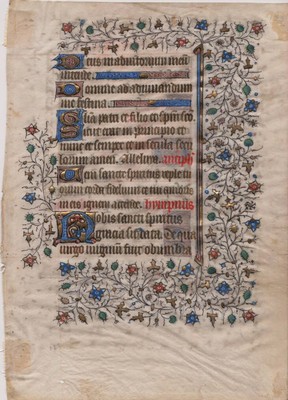 Deus in adiutorium meu
intende.
Domine ad adiuvandum
me festina.
Gloria patri et filio et spui sco
sicut erat in principio et
nunc et semper et in secula secu
lorum amen. Alleluya. antiph
Veni sancte spiritus reple tu
orum corda fidelium et tui amoris
in eis ignem accende. hympnus
Nobis sancti spiritus
gracia sit data. De qua
virgo virginum fuit obumbra